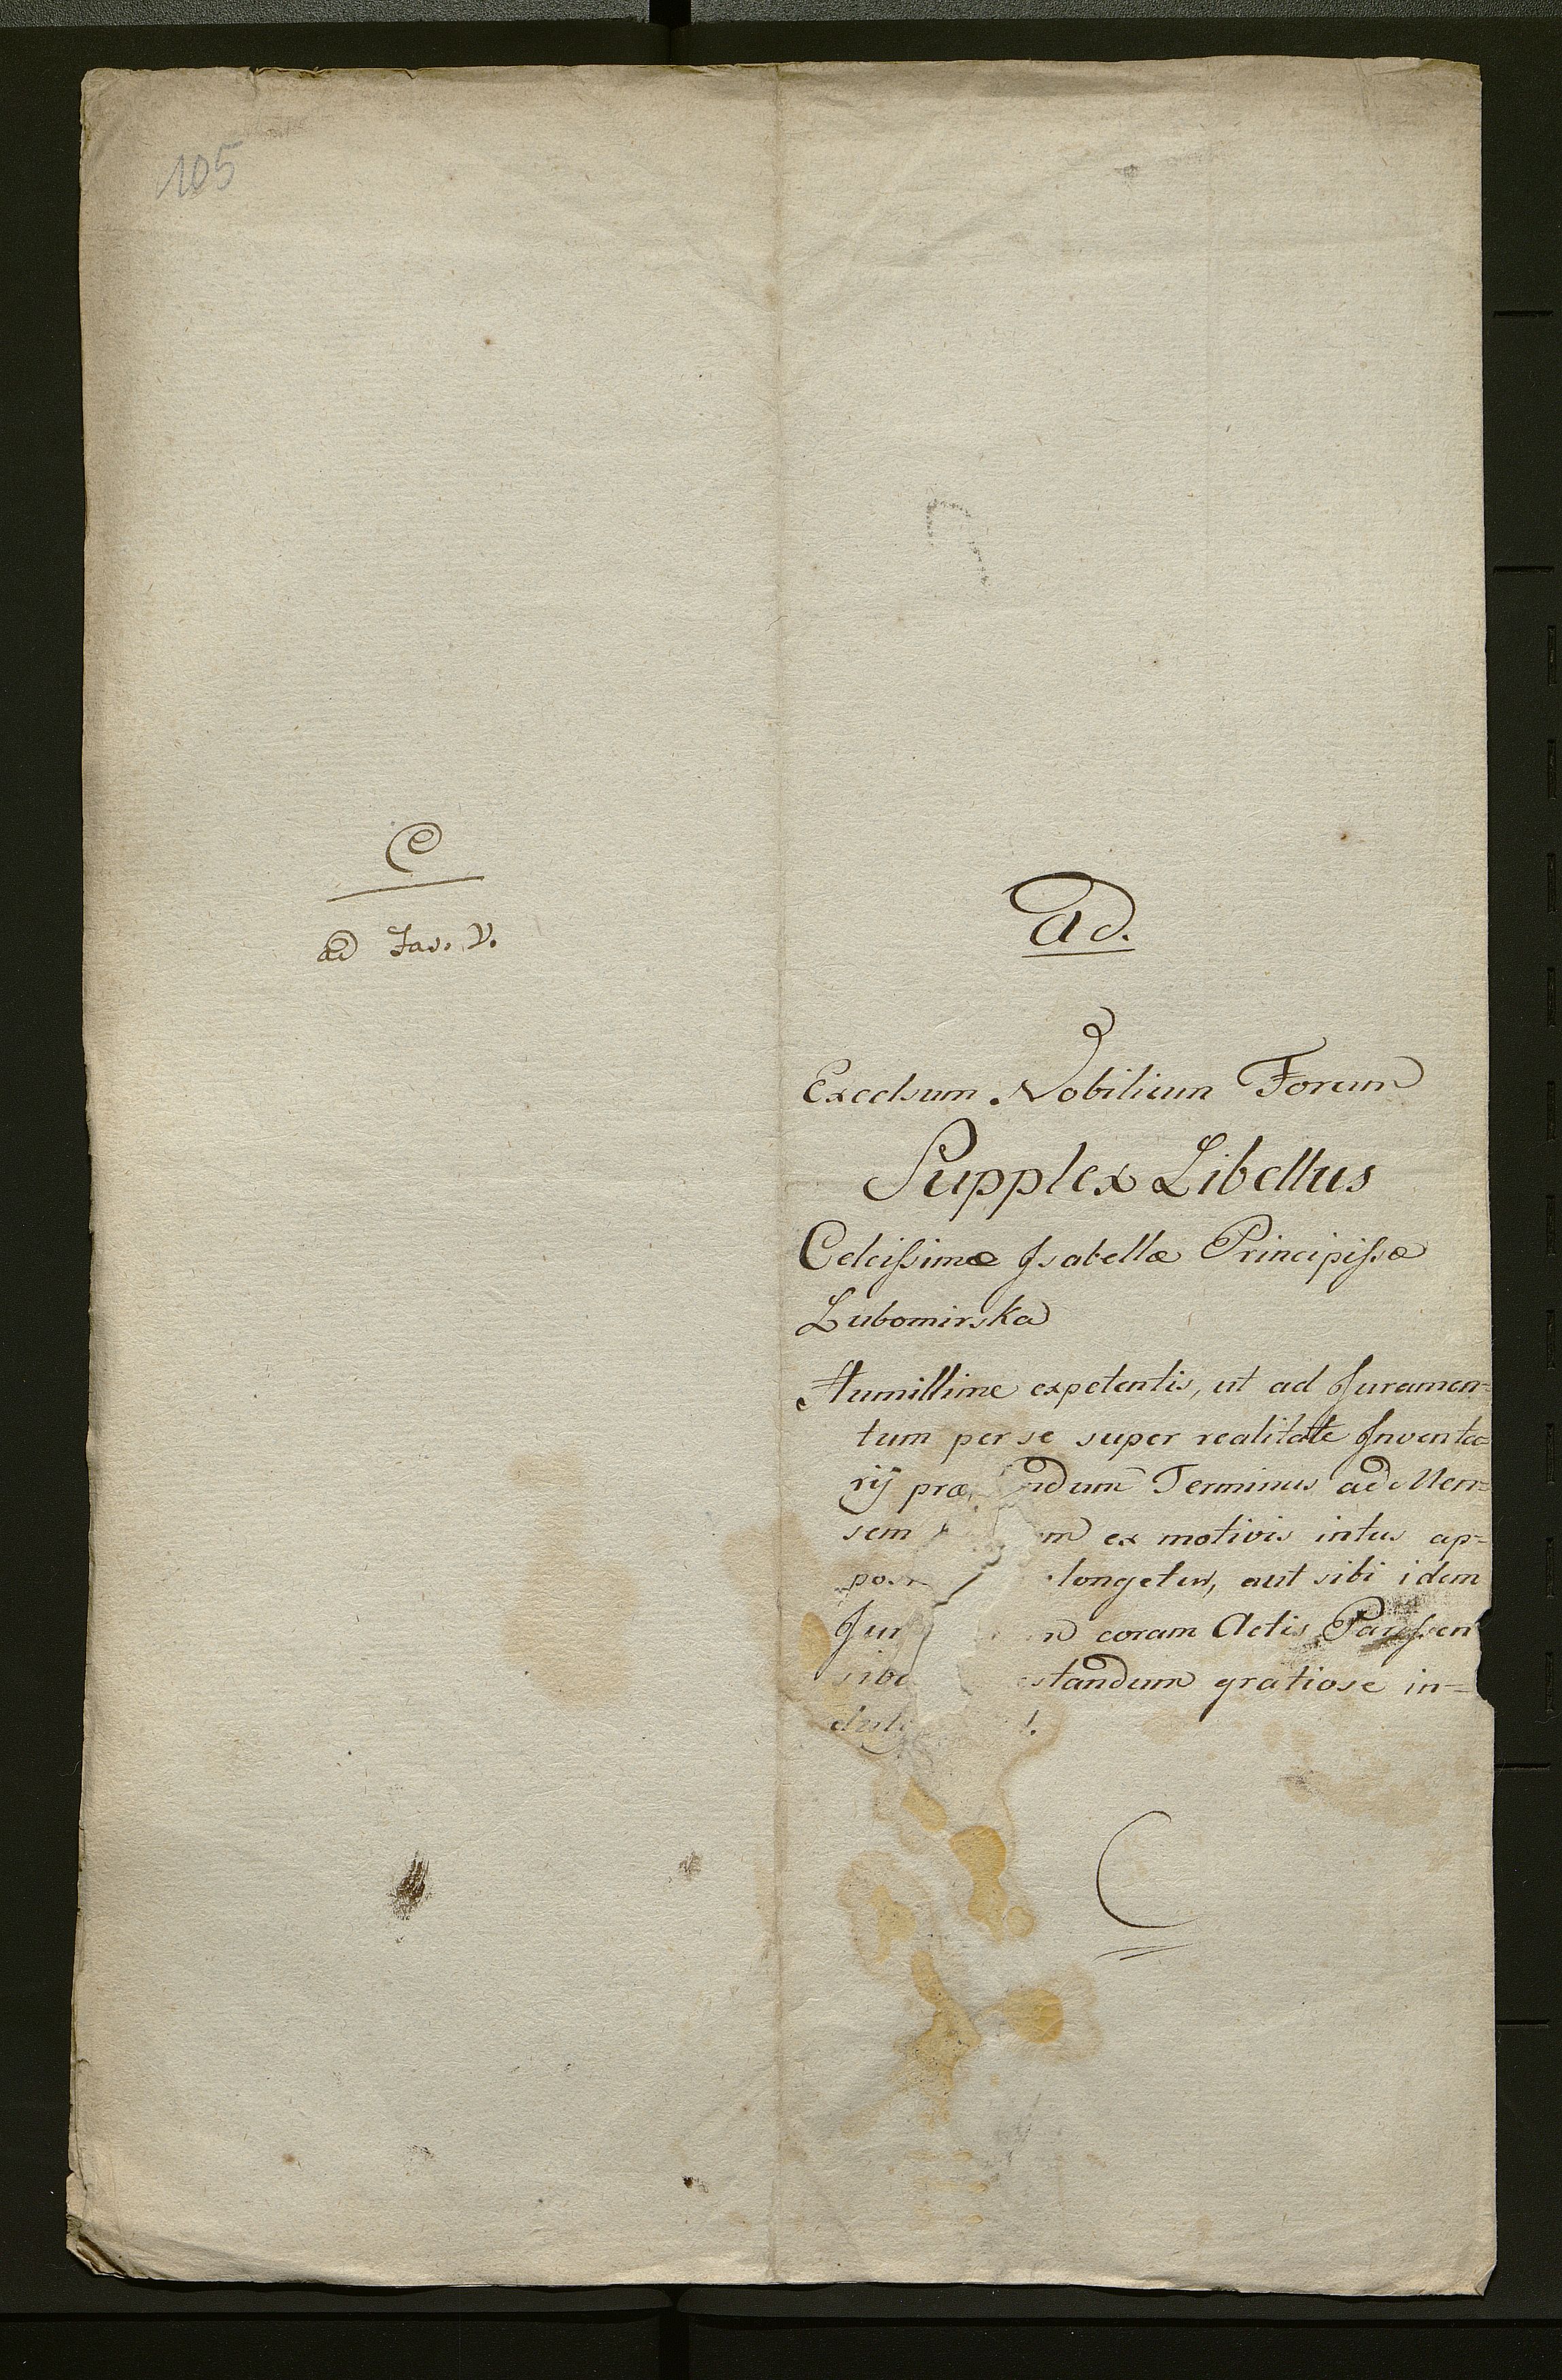 105
C
ad Fas. V.
ad.
Excelsum Nobilium Forum
Supplex Libellus
Celcissimæ Isabellæ Principissæ
Lubomirska
Humillime expetentis, ut ad Juramen=
tum per se super realitate Inventa=
rij præ ndum Terminus ad Men=
sem m ex motivis intus ap=
pos longetur, aut sibi idem
Jur m coram Actis Parysien
sibu standum gratiose in=
dulg .
C